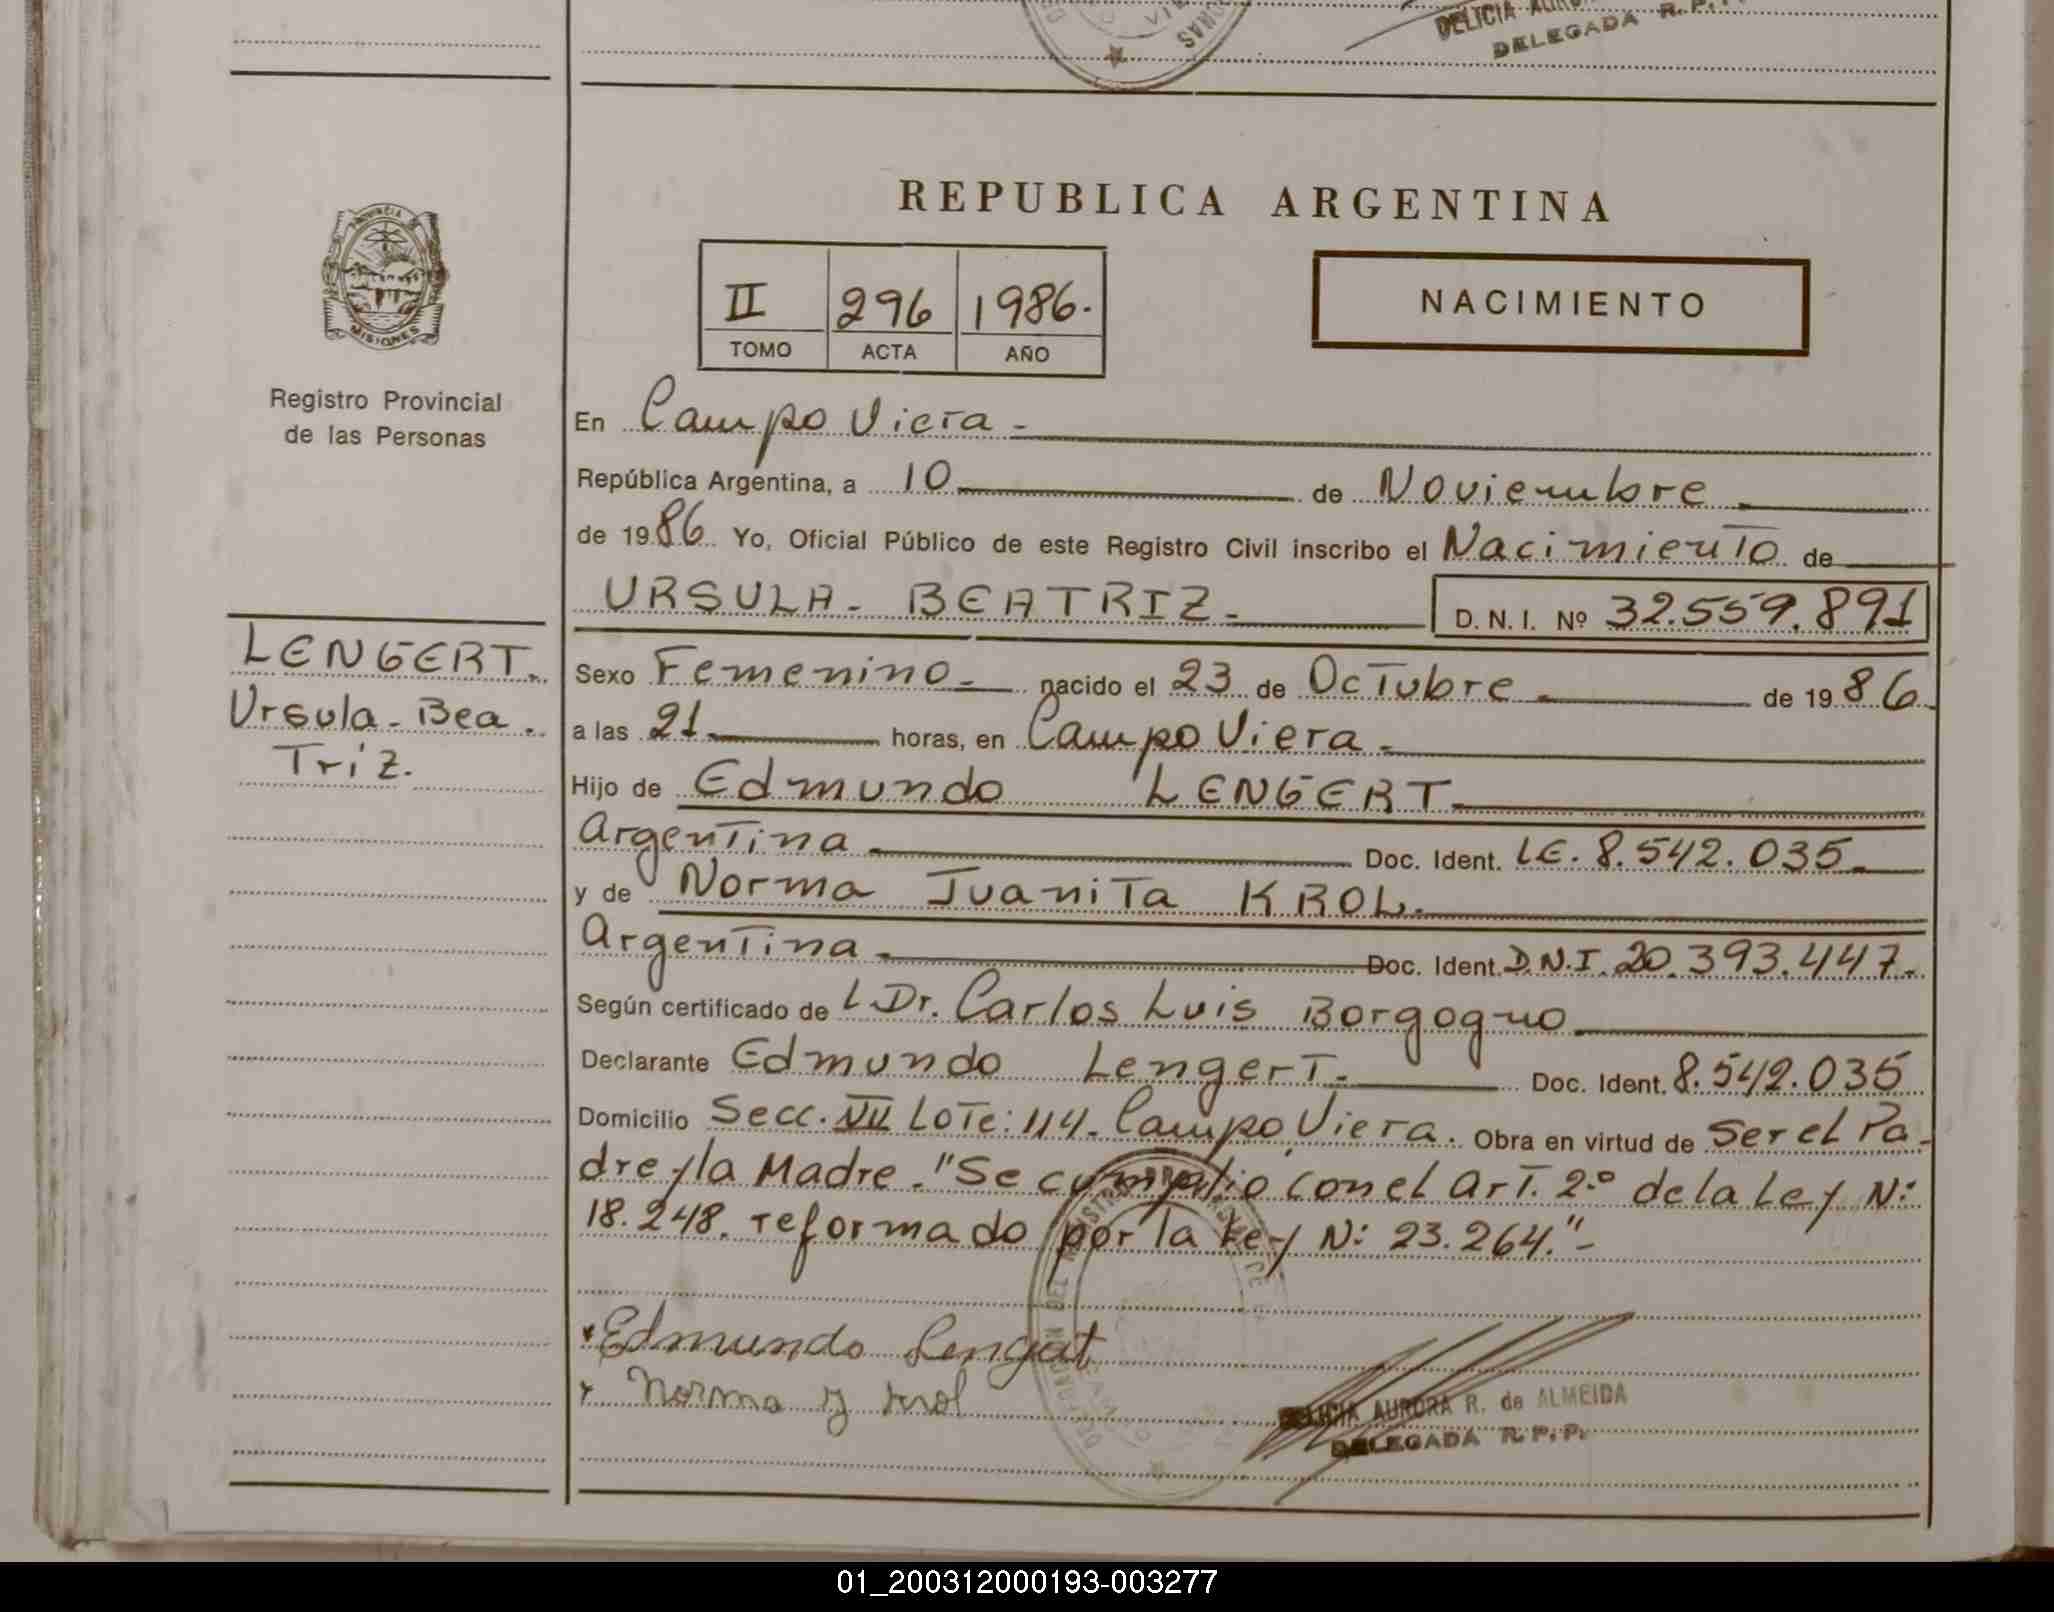 DELICIA AURO
DELEGADA R.P.
REPUBLICA ARGENTINA
PROVINCIA DE
MISIONES
Registro Provincial
de las Personas
II 296 1986.
TOMO ACTA AÑO
NACIMIENTO
En Campo Viera -
República Argentina, a 10 de Noviembre
de 1986 Yo, Oficial Público de este Registro Civil inscribo el Nacimiento de
URSULA - BEATRIZ - D. N. I. Nº 32.559.891
LENGERT.
Ursula - Bea -
Triz.
Sexo Femenino - nacido el 23 de Octubre - de 1986
a las 21 horas, en Campo Viera -
Hijo de Edmundo LENGERT
Argentina - Doc. Ident. LE. 8.542.035
y de Norma Juanita KROL.
Argentina - Doc. Ident. D.N.I. 20.393.447.
Según certificado de L Dr. Carlos Luis Borgogno
Declarante Edmundo Lengert. Doc. Ident. 8.542.035
Domicilio Secc. VII Lote: 114 - Campo Viera. Obra en virtud de Ser el Pa-
dre y la Madre. "Se cumplio con el Art. 2º de la Ley Nº:
18.248. reformado por la Ley Nº: 23.264." -
Edmundo Lengert
Norma J Krol
DELICIA AURORA R. de ALMEIDA
DELEGADA R.P.P.
01_200312000193-003277